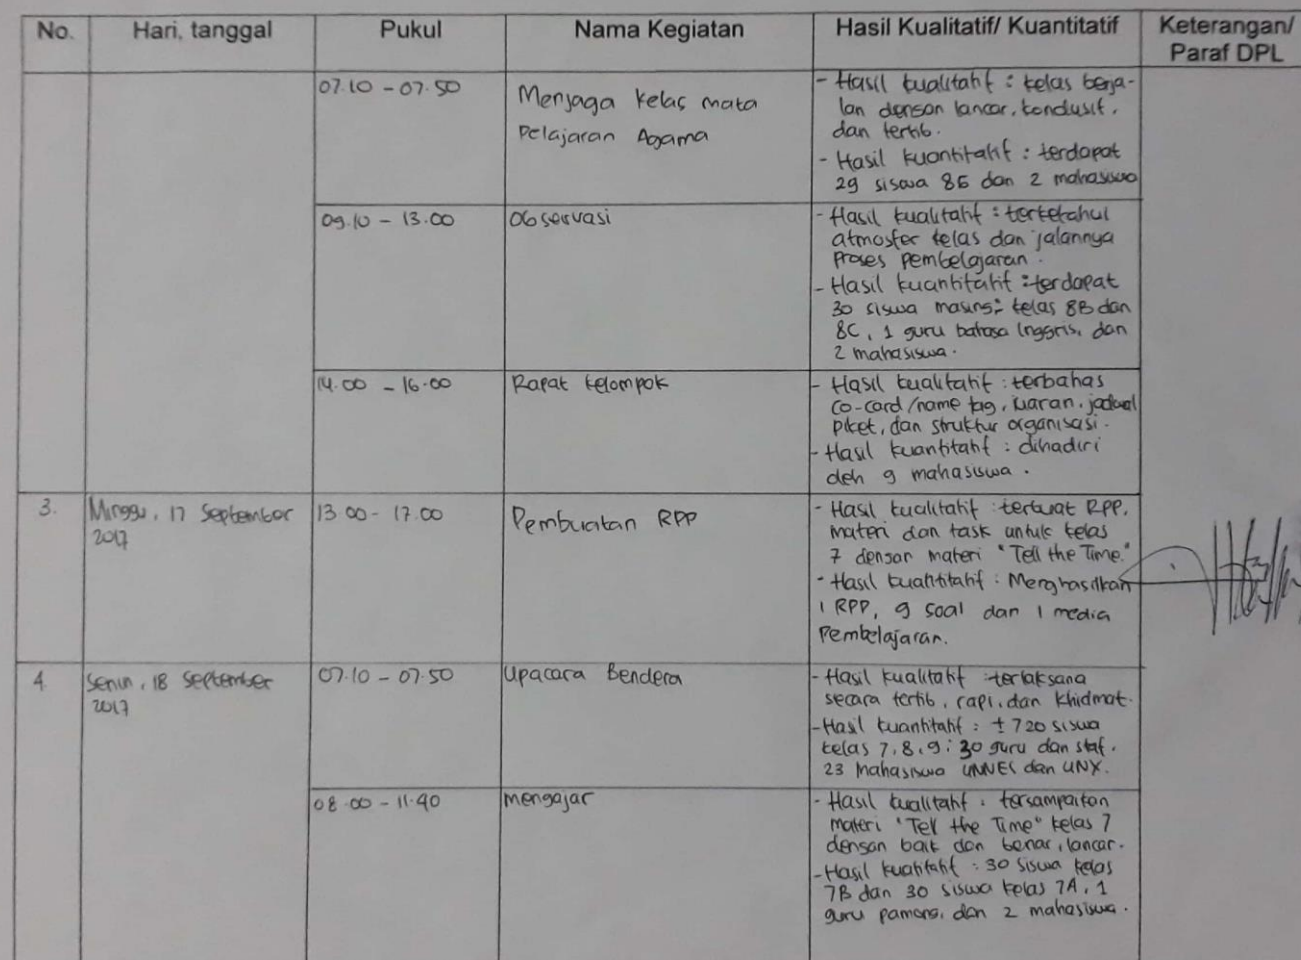 No. Hari, tanggal Pukul Nama Kegiatan Hasil Kualitatif/ Kuantitatif Keterangan/
Paraf DPL
07.10 - 07.50
Menjaga kelas mata
pelajaran Agama
- Hasil kualitatif : kelas berja-
lan dengan lancar, kondusif,
dan tertib.
- Hasil kuantitatif : terdapat
29 siswa 8E dan 2 mahasiswa
09.10 - 13.00
Observasi
- Hasil kualitatif : terketahui
atmosfer kelas dan jalannya
proses pembelajaran.
- Hasil kuantitatif : terdapat
30 siswa masing2 kelas 8B dan
8C, 1 guru bahasa Inggris, dan
2 mahasiswa.
14.00 - 16.00
Rapat kelompok
- Hasil kualitatif : terbahas
co-card/name tag, iuran, jadwal
piket, dan struktur organisasi.
- Hasil kuantitatif : dihadiri
oleh 9 mahasiswa.
3. Minggu, 17 September
2017
13.00 - 17.00
Pembuatan RPP
- Hasil kualitatif : terbuat RPP,
materi dan task untuk kelas
7 dengan materi "Tell the Time."
- Hasil kuantitatif : Menghasilkan
1 RPP, 9 soal dan 1 media
pembelajaran.
4. Senin, 18 September
2017
07.10 - 07.50
Upacara Bendera
- Hasil kualitatif : terlaksana
secara tertib, rapi, dan khidmat.
- Hasil kuantitatif : ± 720 siswa
kelas 7, 8, 9 ; 30 guru dan staf,
23 mahasiswa UNNES dan UNY.
08.00 - 11.40
Mengajar
- Hasil kualitatif : tersampaikan
materi "Tell the Time" kelas 7
dengan baik dan benar, lancar.
- Hasil kuantitatif : 30 siswa kelas
7B dan 30 siswa kelas 7A, 1
guru pamong, dan 2 mahasiswa.